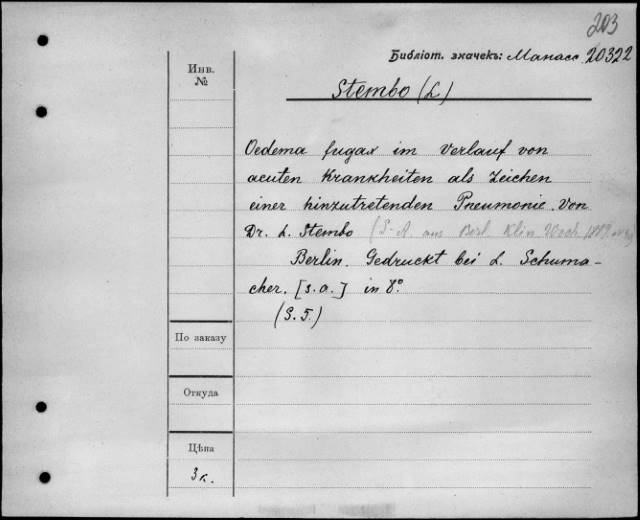 203
Библіот. значекъ: Манасс. 20322
Инв.
№
Stembo (L)
Oedema fugax im Verlauf von
acuten Krankheiten als Zeichen
einer hinzutretenden Pneumonie. Von
Dr. L. Stembo (S.-A. aus Berl. Klin. Woch. 1889
Berlin. Gedruckt bei L. Schuma-
cher. [s.a.] in 8°
(S. 5.)
По заказу
Откуда
Цѣна
3 к.